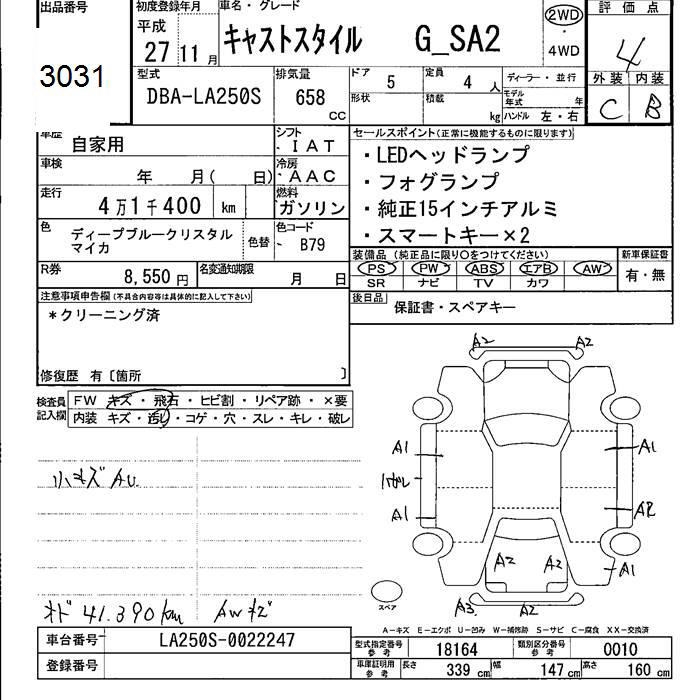 出品番号
3031
初度登録年月
平成
27 11月
車名・グレード
キャストスタイル G_SA2
2WD
・
4WD
評価点
4
外装 内装
C B
型式
DBA-LA250S
排気量
658 CC
ドア 5
形状
定員 4 人
積載 kg
ディーラー・並行
モデル年式 年
ハンドル 左・右
車歴 自家用
シフト IAT
車検 年 月( 日)
冷房 AAC
走行 4万1千400 km
燃料 ガソリン
色 ディープブルークリスタル
マイカ
色替
色コード
B79
R券 8,550円
名変通知期限 月 日
セールスポイント(正常に機能するものに限ります)
・LEDヘッドランプ
・フォグランプ
・純正15インチアルミ
・スマートキー×2
装備品 (純正品に限り○をつけてください)
PS PW ABS エアB AW
SR ナビ TV カワ
新車保証書
有・無
後日品
保証書・スペアキー
注意事項申告欄(不具合内容等は具体的に記入して下さい)
*クリーニング済
修復歴 有〔箇所 〕
検査員
記入欄
FW キズ・飛石・ヒビ割・リペア跡・×要
内装 キズ・汚れ・コゲ・穴・スレ・キレ・破レ
小キズ AU
オド 41.390km AWキズ
A2 A2
A1 A1
A1 AR
A2 A2 A1
A3 A2
スペア
A-キズ E-エクボ U-凹み W-補修跡 S-サビ C-腐食 XX-交換済
車台番号 LA250S-0022247
登録番号
型式指定番号
参考
18164
類別区分番号
参考
0010
車庫証明用
参考
長さ 339 cm 幅 147 cm 高さ 160 cm